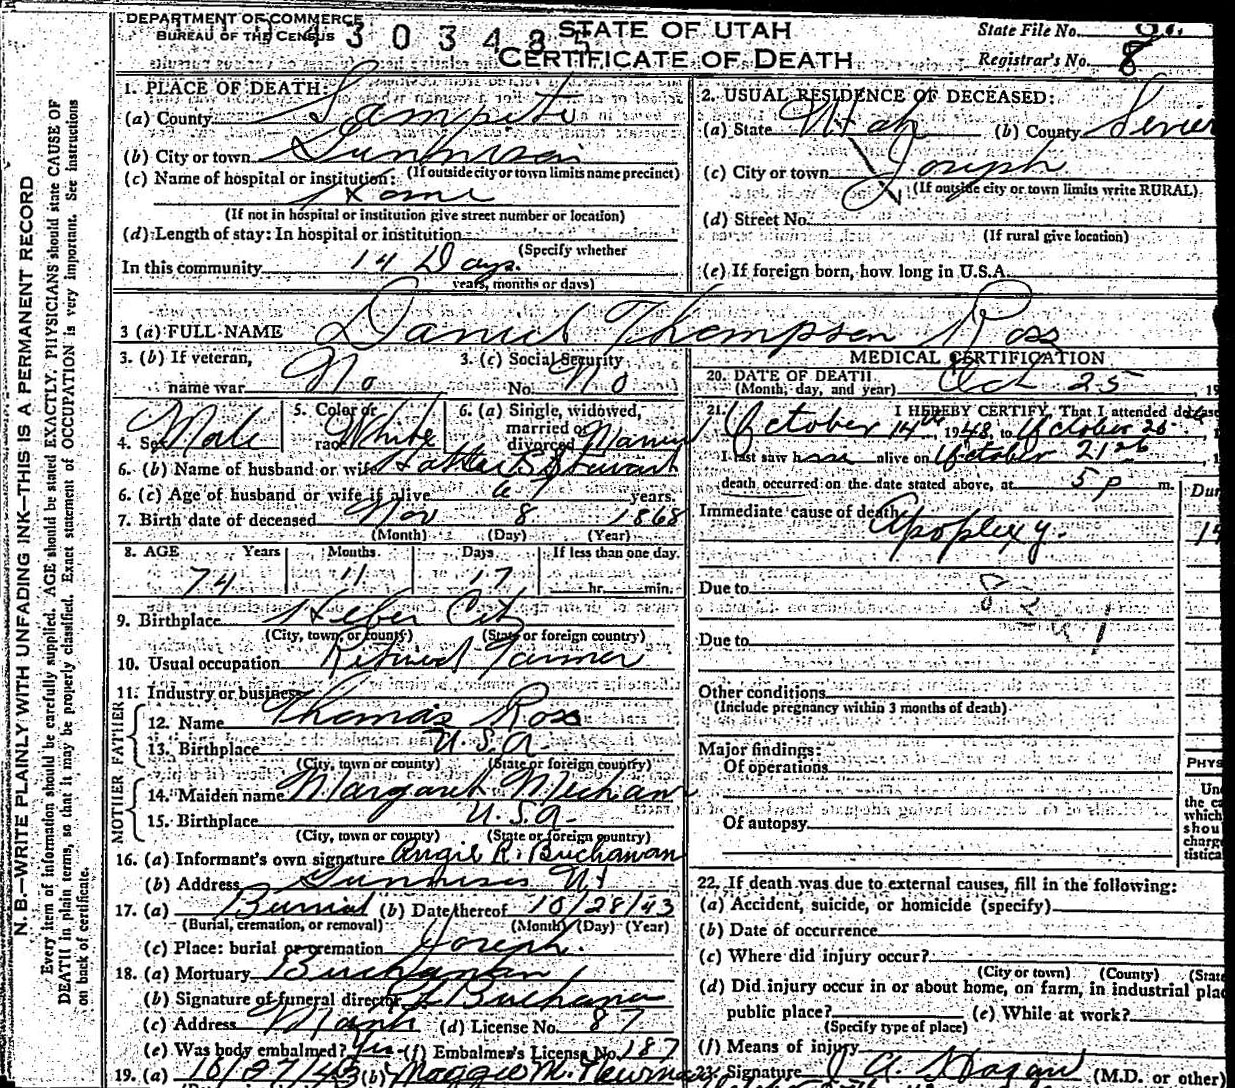 DEPARTMENT OF COMMERCE
BUREAU OF THE CENSUS
430348
STATE OF UTAH
CERTIFICATE OF DEATH
State File No.
Registrar's No. 8
N. B.—WRITE PLAINLY WITH UNFADING INK—THIS IS A PERMANENT RECORD
Every item of information should be carefully supplied. AGE should be stated EXACTLY. PHYSICIANS should state CAUSE OF
DEATH in plain terms, so that it may be properly classified. Exact statement of OCCUPATION is very important. See instructions
on back of certificate.
1. PLACE OF DEATH:
(a) County Sanpete
(b) City or town Gunnison
(If outside city or town limits name precinct)
(c) Name of hospital or institution:
Home
(If not in hospital or institution give street number or location)
(d) Length of stay: In hospital or institution
(Specify whether
In this community 14 Days.
years, months or days)
2. USUAL RESIDENCE OF DECEASED:
(a) State Utah (b) County Sevier
(c) City or town Joseph
(If outside city or town limits write RURAL)
(d) Street No.
(If rural give location)
(e) If foreign born, how long in U.S.A.
3 (a) FULL NAME Daniel Thompson Ross
3. (b) If veteran,
name war No
3. (c) Social Security
No. No
4. Sex Male
5. Color or
race White
6. (a) Single, widowed,
married or
divorced Married
6. (b) Name of husband or wife Stewart
6. (c) Age of husband or wife if alive years.
7. Birth date of deceased Nov 8 1868
(Month) (Day) (Year)
8. AGE Years Months Days If less than one day.
74 11 17 hr. min.
9. Birthplace Heber City
(City, town, or county) (State or foreign country)
10. Usual occupation Retired Farmer
11. Industry or business
FATHER
12. Name Thomas Ross
13. Birthplace U.S.A.
(City, town or county) (State or foreign country)
MOTHER
14. Maiden name Margaret Mecham
15. Birthplace U.S.A.
(City, town or county) (State or foreign country)
16. (a) Informant's own signature Angie R. Buchanan
(b) Address Gunnison Ut
17. (a) Burial (b) Date thereof 10/28/43
(Burial, cremation, or removal) (Month) (Day) (Year)
(c) Place: burial or cremation Joseph.
18. (a) Mortuary Buchanan
(b) Signature of funeral director Buchanan
(c) Address Manti (d) License No. 87
(e) Was body embalmed? Yes (f) Embalmer's License No. 187
19. (a) 10/27/43 (b) Maggie M.
MEDICAL CERTIFICATION
20. DATE OF DEATH
(Month, day, and year) Oct 25, 19
21. I HEREBY CERTIFY, That I attended
October 14th, 1943, to October 25
I last saw him alive on October
death occurred on the date stated above, at 5 P m.
Immediate cause of death
Apoplexy.
Due to
Due to
Other conditions
(Include pregnancy within 3 months of death)
Major findings:
Of operations
Of autopsy
Dur
14
PHYS
Un
the ca
which
shou
charge
tistica
22. If death was due to external causes, fill in the following:
(a) Accident, suicide, or homicide (specify)
(b) Date of occurrence
(c) Where did injury occur?
(City or town) (County) (State
(d) Did injury occur in or about home, on farm, in industrial plac
public place? (e) While at work?
(Specify type of place)
(f) Means of injury
23. Signature (M.D. or other)